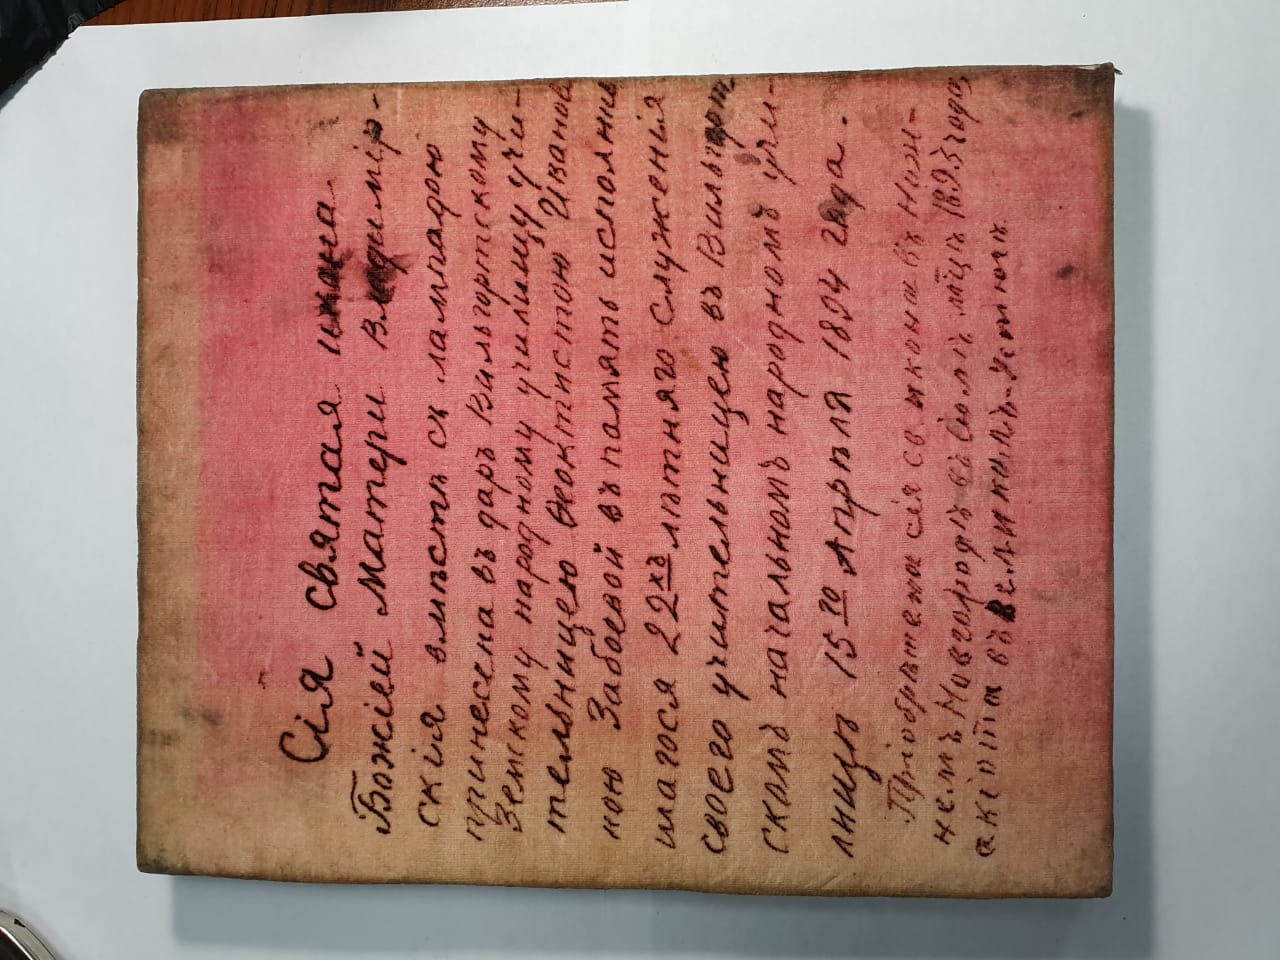 Сія святая икона
Божіей Матери Владимір-
скія вмѣстѣ съ лампадою
принесена въ даръ Вильгортскому
Земскому народному училищу учи-
тельницею Ѳеоктистою Иванов
ною Забоевой въ память исполнив
шагося 22хъ лѣтняго служенія
своего учительницею въ Вильгорт
скомъ начальномъ народномъ учи-
лищѣ 15го Апрѣля 1894 года.
Пріобрѣтена сія св. икона въ Ниж-
немъ Новгородѣ въ мцѣ 1893 году,
а въ Великомъ-Устюгѣ.